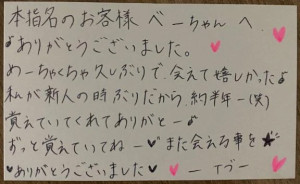 本指名のお客様 べーちゃん へ
♪ありがとうございました。
めーちゃくちゃ久しぶりで、会えて嬉しかった♪
私が新人の時ぶりだから、約半年ー(笑)
覚えていてくれてありがとー♪
ずっと覚えていてねー♥また会える事を★
♥ありがとうございました♥